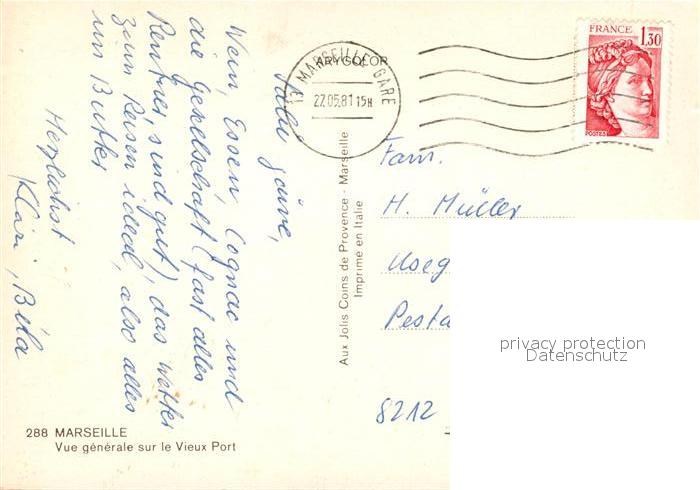 Salü zäme,
Wein, Essen, Cognac und
die Gesellschaft (fast alles
Rentner, sind gut), das Wetter
zum Reisen ideal, also alles
in Butter
Herzlichst
Klári, Béla
288 MARSEILLE
Vue générale sur le Vieux Port
ARYCOLOR
Aux Jolis Coins de Provence - Marseille
Imprimé en Italie
13 MARSEILLE GARE
27.05.81 15H
FRANCE 1,30
POSTES
Fam.
H. Müller
Pesta
8212
privacy protection
Datenschutz